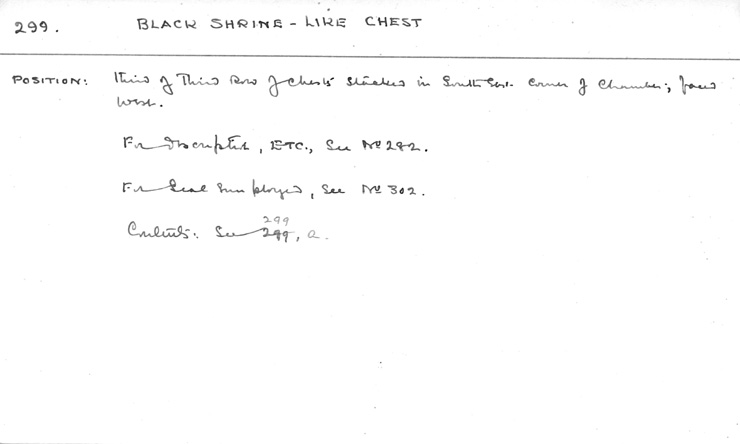 299. BLACK SHRINE-LIKE CHEST
POSITION: Third of Third Row of chests stacked in South East corner of Chamber; faces
West.
For description, ETC., See Nº 282.
For Seal employed, see Nº 302.
299
Contents: See 299, a.